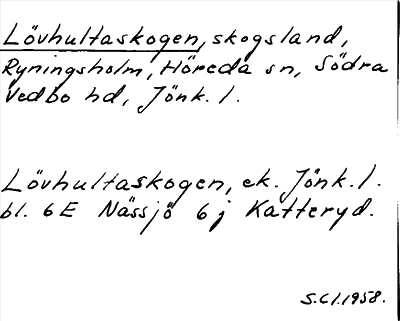 Lövhultaskogen, skogsland,
Ryningsholm, Höreda sn, Södra
Vedbo hd, Jönk. l.
Lövhultaskogen, ek. Jönk. l.
bl. 6E Nässjö 6j Katteryd.
S.Cl. 1958.